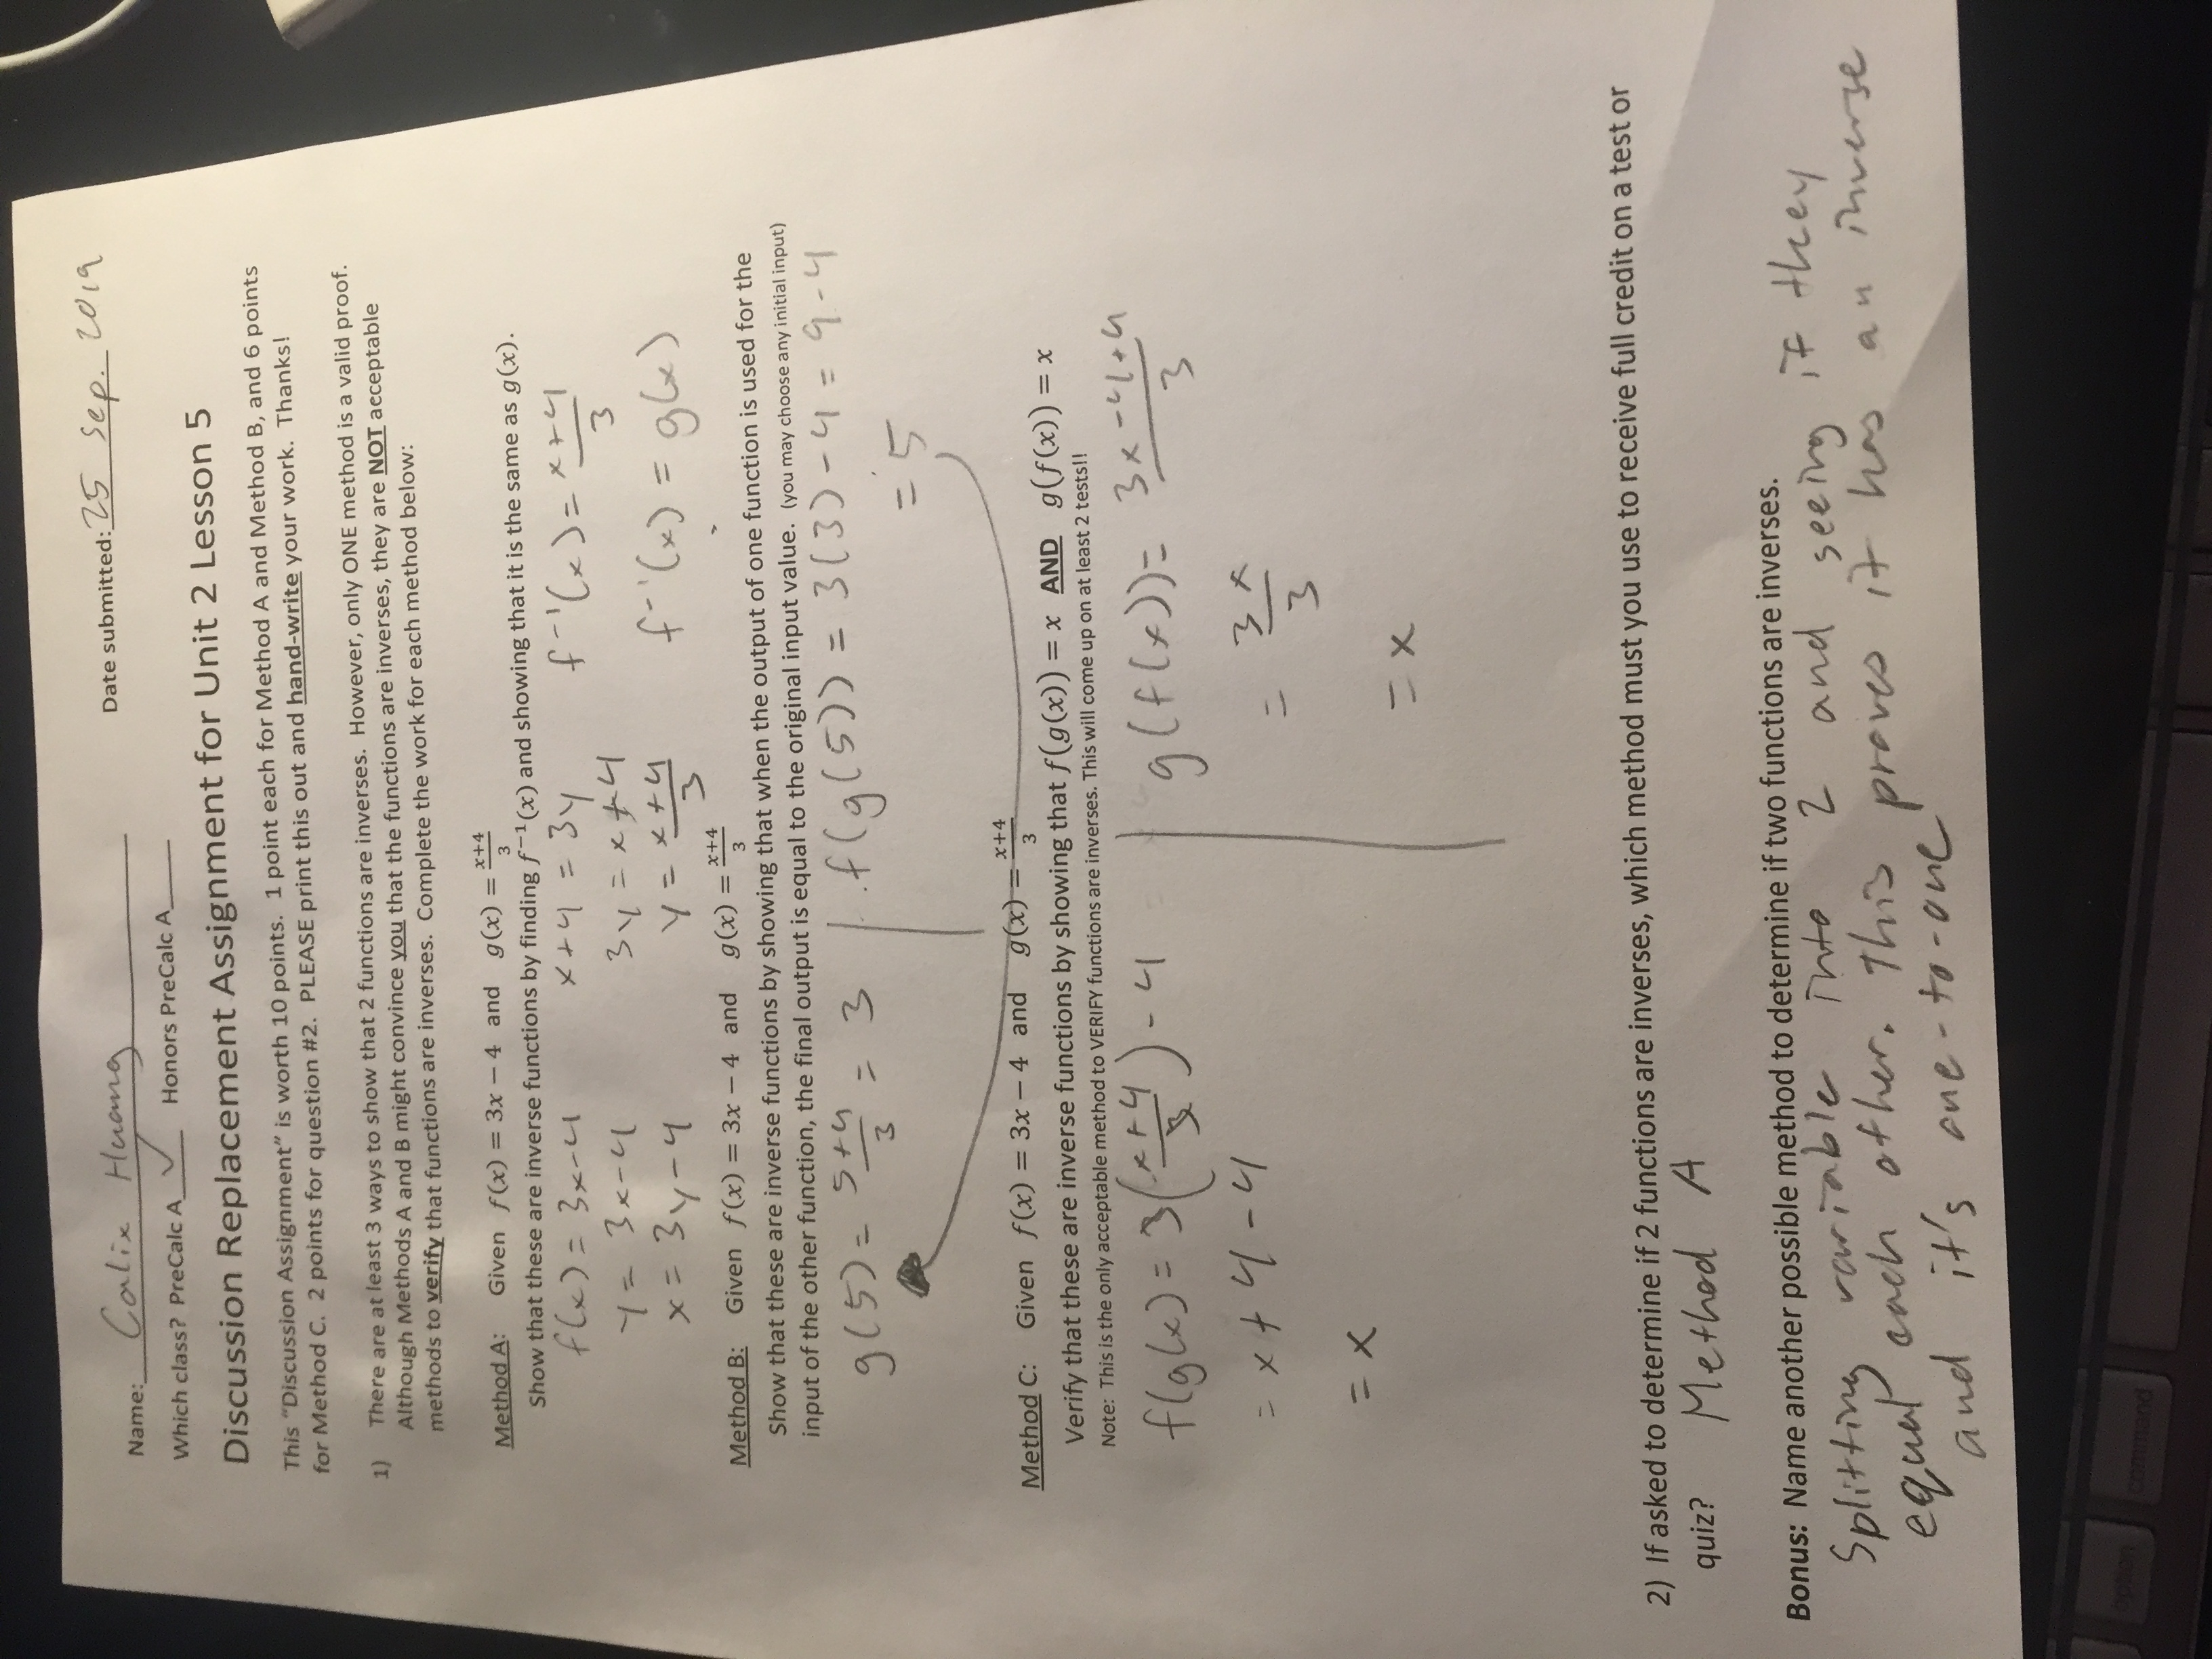 Name: Calix Huang
Date submitted: 25 Sep. 2019
Which class? PreCalc A ✓ Honors PreCalc A
Discussion Replacement Assignment for Unit 2 Lesson 5
This "Discussion Assignment" is worth 10 points. 1 point each for Method A and Method B, and 6 points
for Method C. 2 points for question #2. PLEASE print this out and hand-write your work. Thanks!
1) There are at least 3 ways to show that 2 functions are inverses. However, only ONE method is a valid proof.
Although Methods A and B might convince you that the functions are inverses, they are NOT acceptable
methods to verify that functions are inverses. Complete the work for each method below:
Method A: Given f(x) = 3x − 4 and g(x) = (x+4)/3
Show that these are inverse functions by finding f⁻¹(x) and showing that it is the same as g(x).
f(x) = 3x-4
y = 3x-4
x = 3y-4
x+4 = 3y
3y = x+4
y = (x+4)/3
f⁻¹(x) = (x+4)/3
f⁻¹(x) = g(x)
Method B: Given f(x) = 3x − 4 and g(x) = (x+4)/3
Show that these are inverse functions by showing that when the output of one function is used for the
input of the other function, the final output is equal to the original input value. (you may choose any initial input)
g(5) = (5+4)/3 = 3
f(g(5)) = 3(3)-4 = 9-4
= 5
Method C: Given f(x) = 3x − 4 and g(x) = (x+4)/3
Verify that these are inverse functions by showing that f(g(x)) = x AND g(f(x)) = x
Note: This is the only acceptable method to VERIFY functions are inverses. This will come up on at least 2 tests!!
f(g(x) = 3((x+4)/3) - 4
= x+4-4
= x
g(f(x)) = (3x-4+4)/3
= 3x/3
= x
2) If asked to determine if 2 functions are inverses, which method must you use to receive full credit on a test or
quiz? Method A
Bonus: Name another possible method to determine if two functions are inverses.
Splitting variable into 2 and seeing if they
equal each other. This proves it has an inverse
and it's one-to-one
option
command